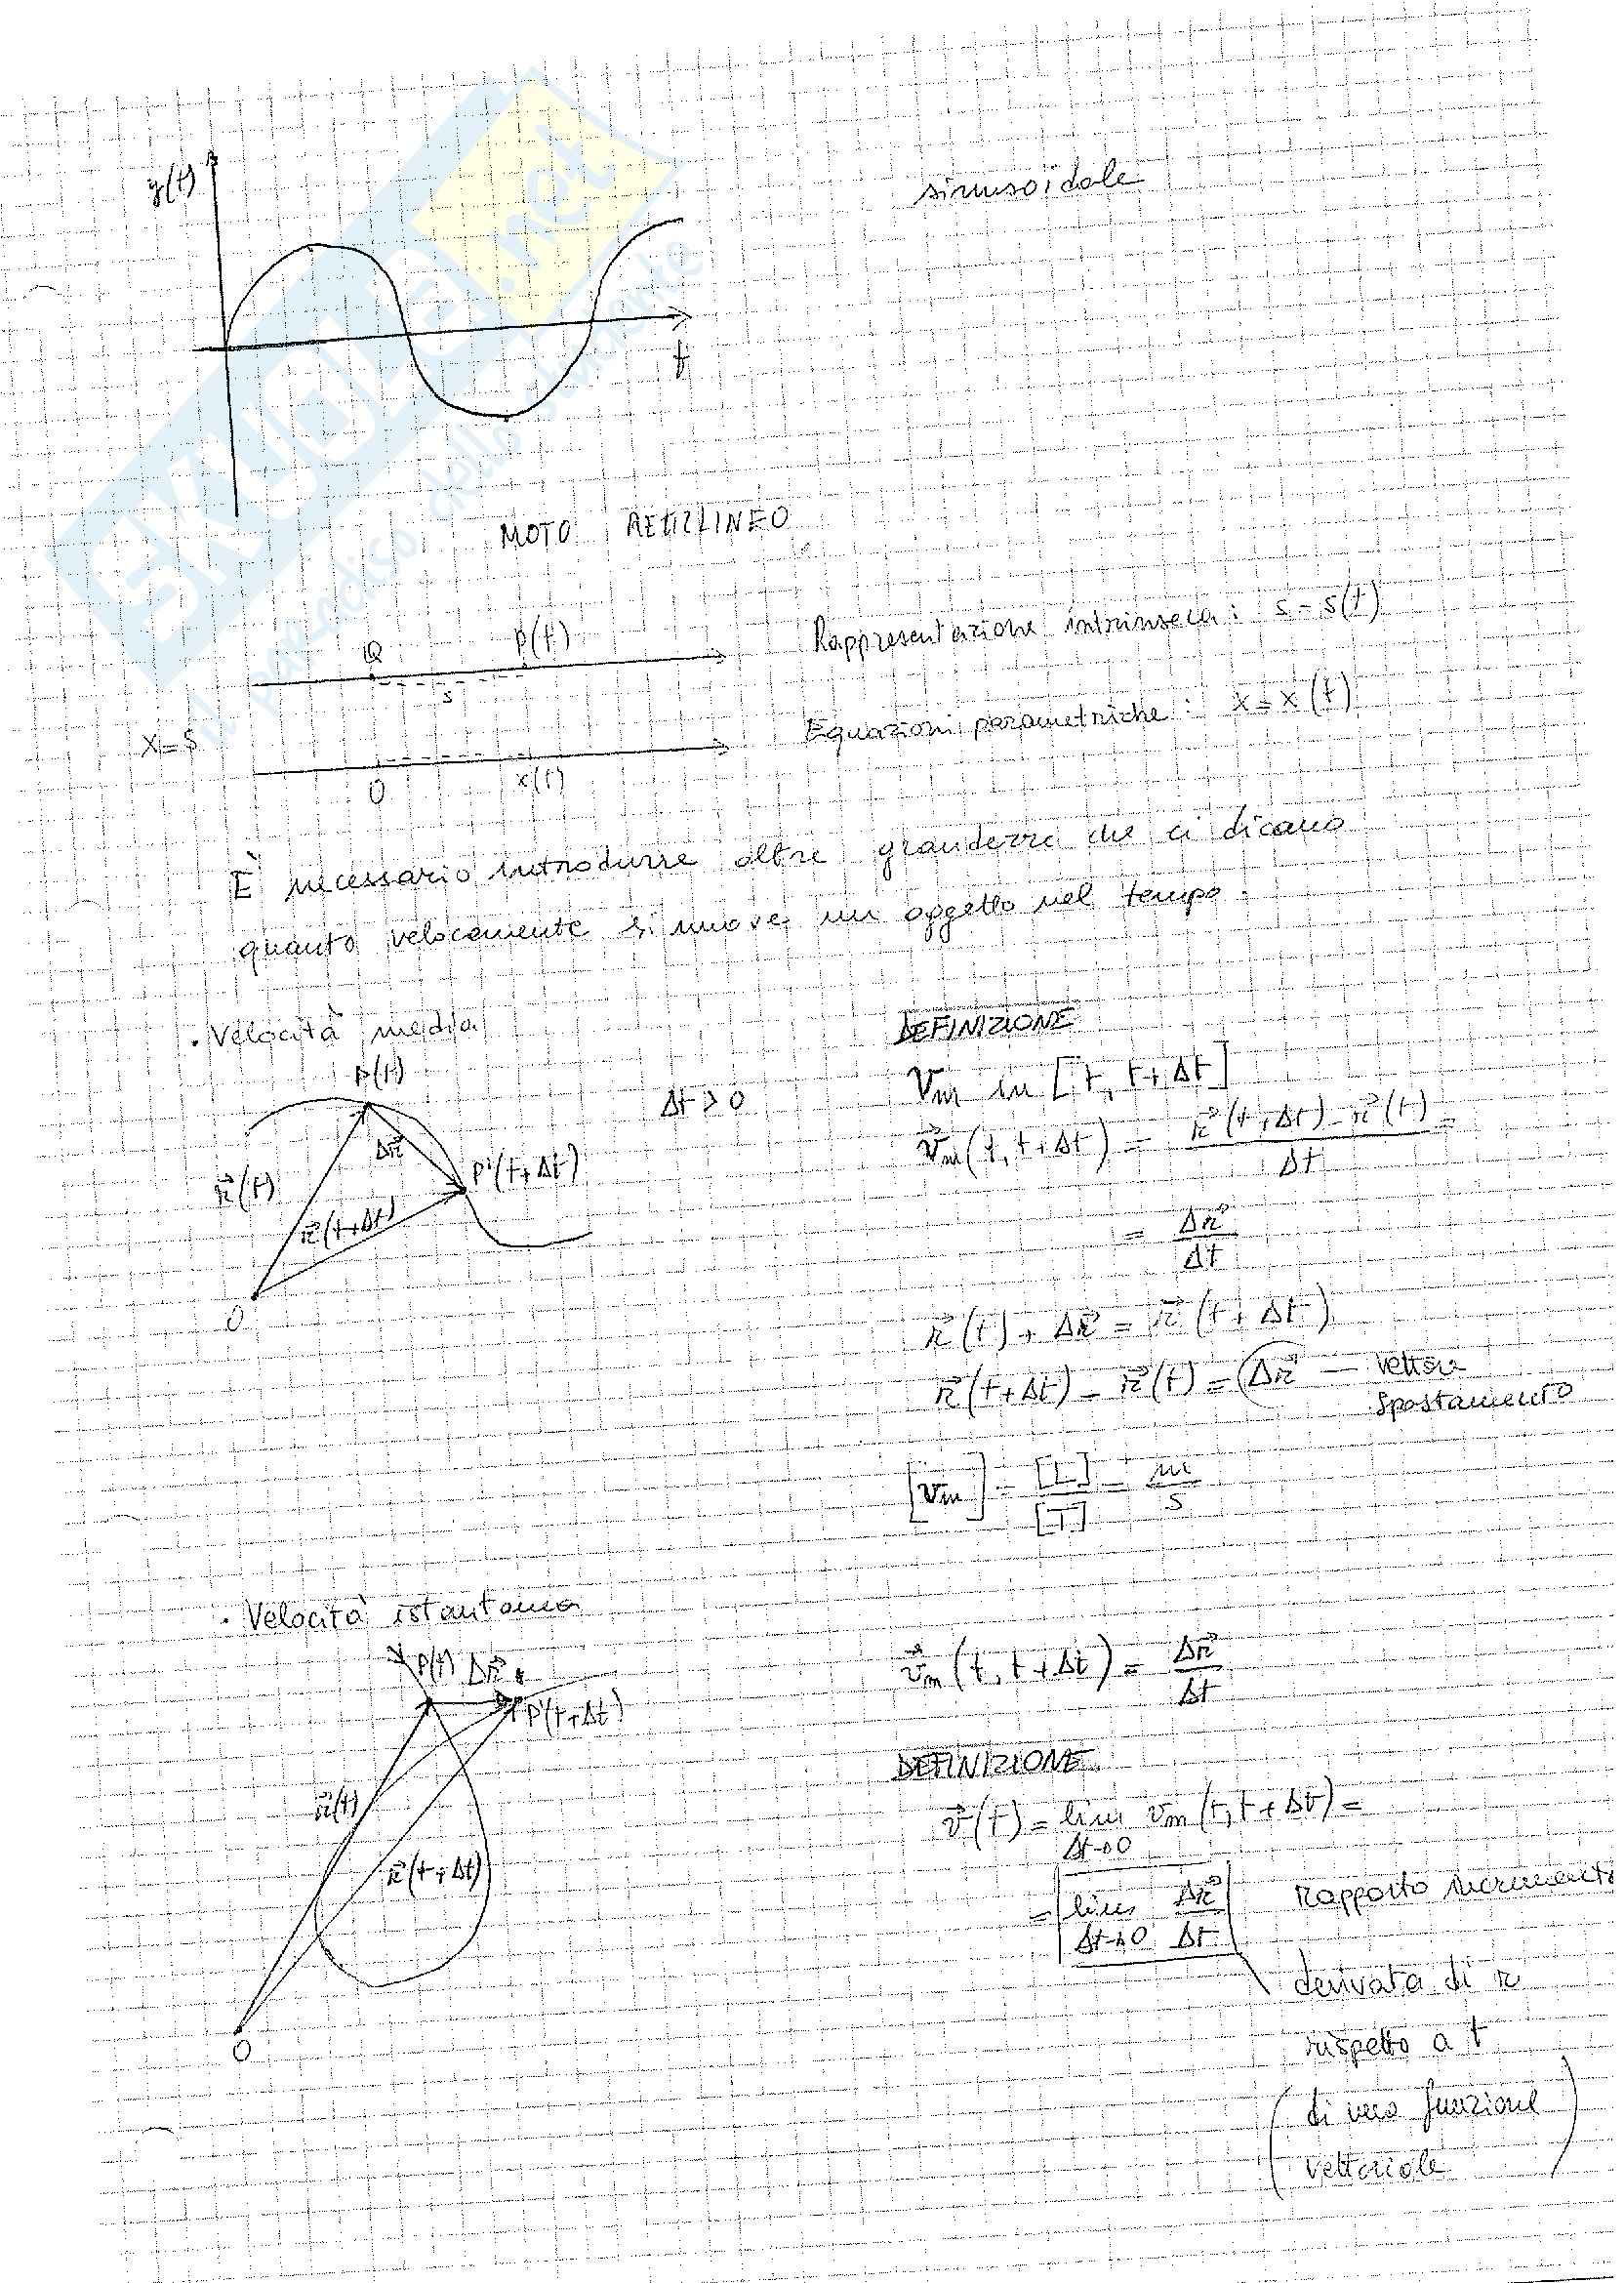 y(t)
sinusoidale
t
MOTO RETTILINEO
Q P(t)
s
Rappresentazione intrinseca: s = s(t)
x = s
O x(t)
Equazioni parametriche: x = x(t)
È necessario introdurre altre grandezze che ci dicano
quanto velocemente si muove un oggetto nel tempo.
• Velocità media
DEFINIZIONE
P(t)
Δt > 0
Vm in [t, t+Δt]
Δr⃗
r⃗(t)
P'(t+Δt)
r⃗(t+Δt)
O
v⃗m(t, t+Δt) = r⃗(t+Δt) - r⃗(t) / Δt =
= Δr⃗ / Δt
r⃗(t) + Δr⃗ = r⃗(t+Δt)
r⃗(t+Δt) - r⃗(t) = Δr⃗ — vettore
spostamento
[vm] = [L] / [T] = m / s
• Velocità istantanea
P(t) Δr⃗
P'(t+Δt)
r⃗(t)
r⃗(t+Δt)
O
v⃗m(t, t+Δt) = Δr⃗ / Δt
DEFINIZIONE
v⃗(t) = lim vm(t, t+Δt) =
Δt→0
= lim Δr⃗ / Δt
Δt→0
rapporto
derivata di r
rispetto a t
(di una funzione
vettoriale)